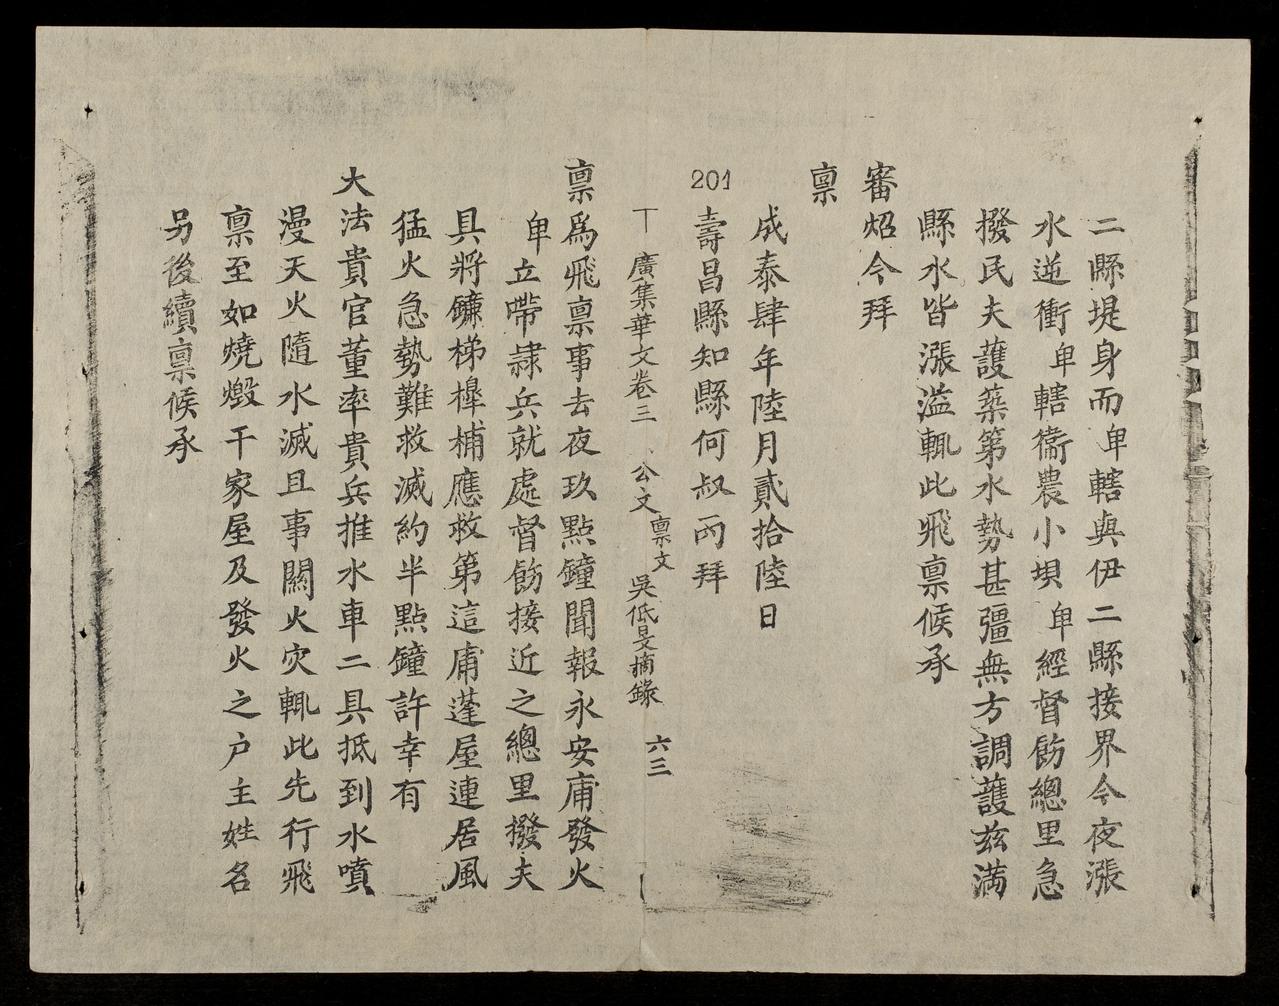 二縣堤身而卑轄與伊二縣接界今夜漲
水逆衝卑轄衞農小垻卑經督飭總里急
撥民夫護築第水勢甚彊無方調護兹満
縣水皆漲溢輒此飛禀候承
審炤今拜
禀
成泰肆年陸月貳拾陸日
201
壽昌縣知縣何叔丙拜
廣集華文卷三 公文 禀文 吳低旻摘錄 六三
禀爲飛禀事去夜玖點鐘聞報永安庯發火
卑立帶隷兵就處督飭接近之總里撥夫
具將鐮梯槹桶應救第這庯蓬屋連居風
猛火急勢難救滅約半點鐘許幸有
大法貴官董率貴兵推水車二具抵到水噴
漫天火隨水滅且事關火灾輒此先行飛
禀至如燒燬干家屋及發火之户主姓名
另後續禀候承